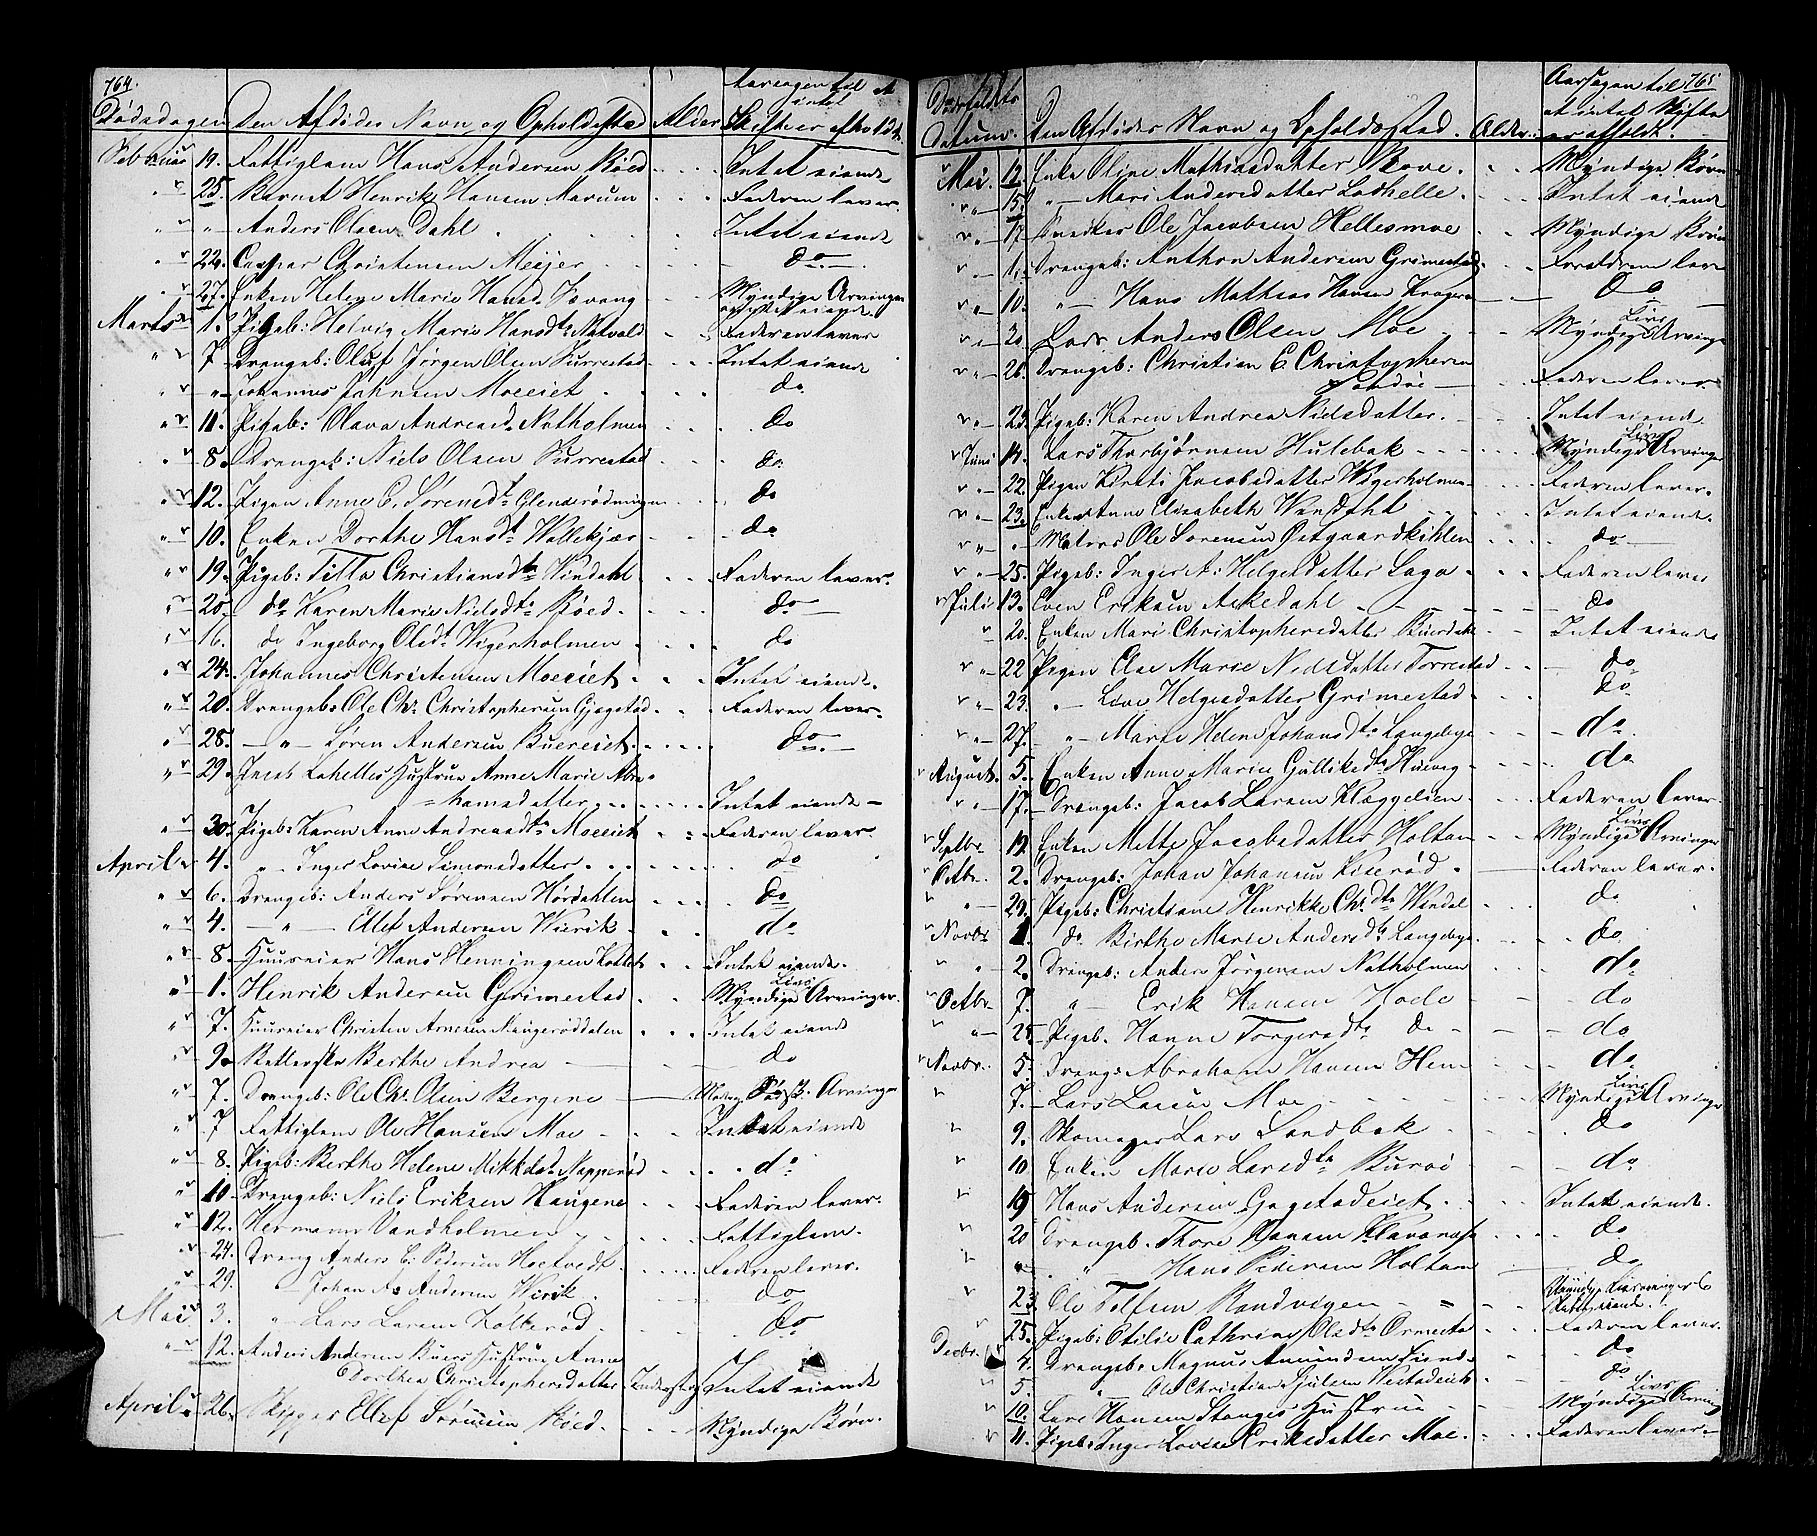 764.
Dødsdagen Den Afdødes Navn og Opholdssted Alder Aarsagen til at intet Skifte er afholdt
Februar 19. Fattiglem Hans Andersen Røed Intet eiende
" 25. Barnet Henrik Hansen Marum Faderen lever.
" " Anders Olsen Dahl Intet eiende
" 22. Caspar Christensen Meijer do
" 27. Enken Helene Marie Hansd. Sævang Myndige Arvinger
intet eiende
Marts 1. Pigeb: Helvig Marie Hansdt. Natvald Faderen lever
" 7 Drengeb: Oluf Jørgen Olsen Furrestad Intet eiende
" " Johannes Johnsen Moeeiet do
" 11. Pigeb: Olava Andreasd. Natholmen do
" 8. Drengeb: Niels Olsen Furrestad do
" 12. Pigen Anne C. Sørensdt. do
" 10. Enken Dorthe Hansdt. Wallekjær do
" 19. Pigeb: Titta Christiansdt. Windahl Faderen lever.
" 25. do Karen Marie Nielsdt. Røed. do
" 16. do Ingeborg Olsdt. Wigerholmen do
" 24. Johannes Christensen Moeeiet Intet eiende.
" 20. Drengeb: Ole Chr. Christophersen Gjegstad Faderen lever.
" 28. " Søren Andersen Bueeiet do
" 29. Jacob Lahelles Hustrue Anne Marie Abra=
=hamsdatter Intet eiende
" 30. Pigeb: Karen Anne Andreasdt. Moeeiet Faderen lever
April 4. " Inger Lovise Simonsdatter do
" 6. Drengeb: Anders Sørensen Hørdahlen do
" 4. " Ellef Andersen Wierik do
" 8. Huuseier Hans Henningsen Intet eiende.
" 1. Henrik Andersen Grimestad Myndige Livs Arvinger.
" 7. Huuseier Christen Arnesen Haugerøddalen Intet eiende
" 9. Betlerske Berthe Andrea do
" 7. Drengeb: Ole Chr. Olsen Bergene Arvinger
" 7 Fattiglem Ole Hansen Moe Intet eiende
" 8. Pigeb: Berthe Helene Mikkelsd. Napperød do
" 10. Drengeb: Niels Eriksen Haugene Faderen lever.
" 12. Hermann Vandholmen Fattiglem.
" 24. Dreng Anders C: Pedersen Hoetvedt Faderen lever.
" 29. " Johan A. Andersen Wirik do
Mai 3. " Lars Larsen Kolterød do
" 12. Anders Andersen Buers Hustrue Anne
Dorthea Christophersdatter Intet eiende
April 26. Skipper Ellef Sørensen Røed. Myndige Børn.
765
Dødsfaldets Datum. Den Afdødes Navn og Opholdssted. Alder. Aarsagen til at intet Skifte er afholdt.
Mai 12. Enke Oline Mathiasdatter Skove. Myndige Børn
" 15. " Mari Andersdatter Lathelle Intet eiende
" 17. Snedker Ole Jacobsen Hellesmoe Myndige Børn
" 1. Drengeb: Anthon Andersen Grimestad Forældrene leve
" 10. " Hans Mathias Hansen Krager do
" 20. Lars Anders Olsen Moe Myndige Livs Arvinge
" 20. Drengeb: Christian C. Christophersen
Sandøe Faderen lever
" 23. Pigeb: Karen Andrea Nielsdatter. Intet eiende
Juni 14. Lars Thorbjørnsen Hulebak Myndige Livs Arvinger
" 22. Pigen Kirsti Jacobsdatter Wigerholmen Faderen lever.
" 23. Enken Anne Elisabeth Windahl Intet eiende.
" " Matros Ole Sørensen Østgaardkihlen do
" 25. Pigeb: Inger A: Helgesdatter Laga Faderen lever
Juli 13. Even Eriksen Askedahl do
" 20. Enken Mari Christophersdatter Buerdahl Intet eiende
" 22 Pigen Else Marie Nielsdatter Torrestad do
" 23. " Live Helgesdatter Grimestad do
" 27. " Marie Helene Johansdt. Langebye do
August 5. Enken Anne Marie Gulliksdt. Huivig do
" 17. Drengeb: Jacob Larsen Klæggelien Faderen lever.
Septbr. 19. Enken Mette Jacobsdatter Holtan Myndige Livs Arvinger
Octbr. 2. Drengeb: Johan Johansen Kiserød Faderen lever.
" 29. Pigeb: Christiane Henrikke Chr.dt. Windal do
Novbr 1. do Birthe Marie Andersdt. Langebye do
" 2. Drengeb: Anders Jørgensen Natholmen do
Octbr. 7. " Erik Hansen Hode do
" 25 Pigeb. Hanne Torgersdt. do do
Novbr. 5. Drengb Abraham Hansen Hem do
" 7. Lars Larsen Moe Myndige Livs Arvinge
" 9. Skomager Lars Sandbak do
" 10 Enken Marie Larsdt. Burøe do
" 19 Hans Andersen Gogstadeiet Intet eiende.
" 20 Drengeb. Thore Hansen Klavenæs do
" " " Hans Pedersen Holtan do
" 23. Ole Tolfsen Randvigen Myndige Livsarvinger &
Intet eiende.
" 25. Pigeb: Otilie Cathrine Olsdt. Ormestad Faderen lever.
Decbr. 4. Drengeb: Magnus Amundsen do
" 5. " Ole Christian do
" 10. Lars Hansen Stanges Hustrue Myndige Livs Arving
" 11. Pigeb: Inger Lovise Eriksdatter Moe. Faderen lever